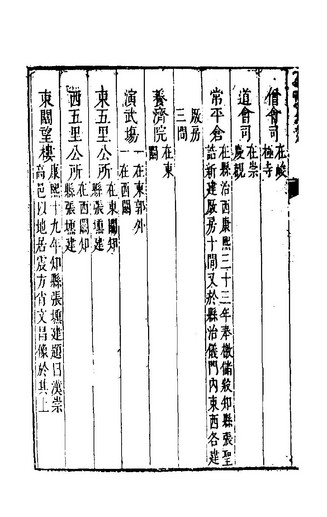 僧會司 在峻
極寺
道會司 在崇
慶觀
常平倉 在縣治西康熙三十三年奉檄備穀知縣張聖
誥新建厫房十間又於縣治儀門內東西各建
厫房
三間
養濟院 在東
關
演武場 一在東郭外
一在西關
東五里公所 在東關知
縣張壎建
西五里公所 在西關知
縣張壎建
東關望樓 康熙十九年知縣張壎建題曰漢崇
高邑以地居震方肖文昌像於其上